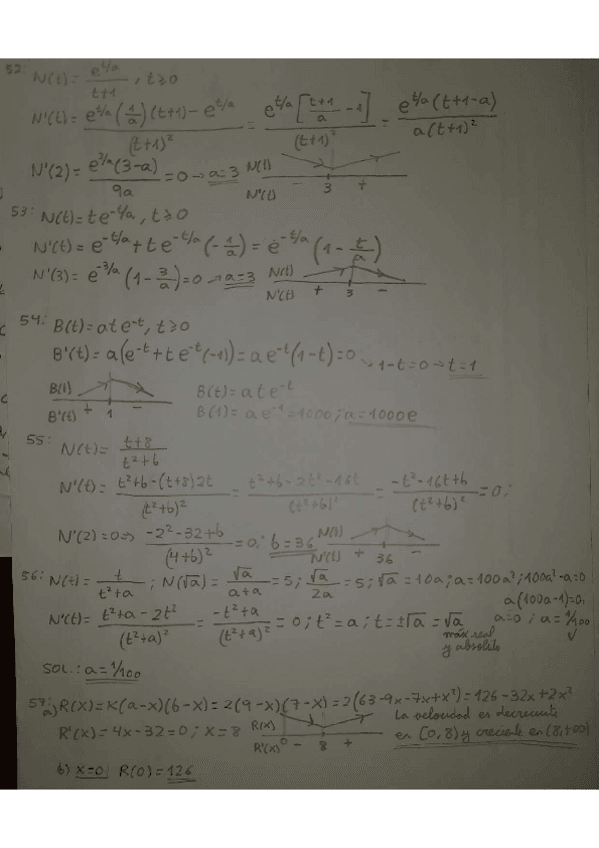 52: N(t)= e^(t/a)/(t+1), t≥0
N'(t)= (e^(t/a)(1/a)(t+1)-e^(t/a))/(t+1)² = (e^(t/a)[(t+1)/a -1])/(t+1)² = (e^(t/a)(t+1-a))/(a(t+1)²)
N'(2)= (e^(2/a)(3-a))/(9a) =0 → a=3 N(t)
N'(t) - 3 +
53: N(t)=te^(-t/a), t≥0
N'(t)= e^(-t/a)+te^(-t/a)(-1/a)= e^(-t/a)(1-t/a)
N'(3)= e^(-3/a)(1-3/a)=0 → a=3 N(t)
N'(t) + 3 -
54: B(t)=ate^(-t), t≥0
B'(t)=a(e^(-t)+te^(-t)(-1))=ae^(-t)(1-t)=0 → 1-t=0→t=1
B(t) B(t)=ate^(-t)
B'(t) + 1 - B(1)=ae^(-1)=1000; a=1000e
55: N(t)= (t+8)/(t²+b)
N'(t)= (t²+b-(t+8)2t)/(t²+b)² = (t²+b-2t²-16t)/(t²+b)² = (-t²-16t+b)/(t²+b)² =0;
N'(2)=0⇒ (-2²-32+b)/(4+b)² =0; b=36 N(t)
N'(t) + 36 -
56: N(t)= t/(t²+a); N(√a)= √a/(a+a) =5; √a/2a =5; √a=10a; a=100a²; 100a²-a=0
a(100a-1)=0;
N'(t)= (t²+a-2t²)/(t²+a)² = (-t²+a)/(t²+a)² =0; t²=a; t=±√a = √a a=0; a=1/100 ✓
máx real
y absoluto
SOL.: a=1/100
57: a) R(x)=K(a-x)(b-x)=2(9-x)(7-x)=2(63-9x-7x+x²)=126-32x+2x²
R'(x)=4x-32=0; x=8 R(x) La velocidad es decreciente
R'(x) 0 - 8 + en [0,8) y creciente en (8,+∞)
b) x=0; R(0)=126